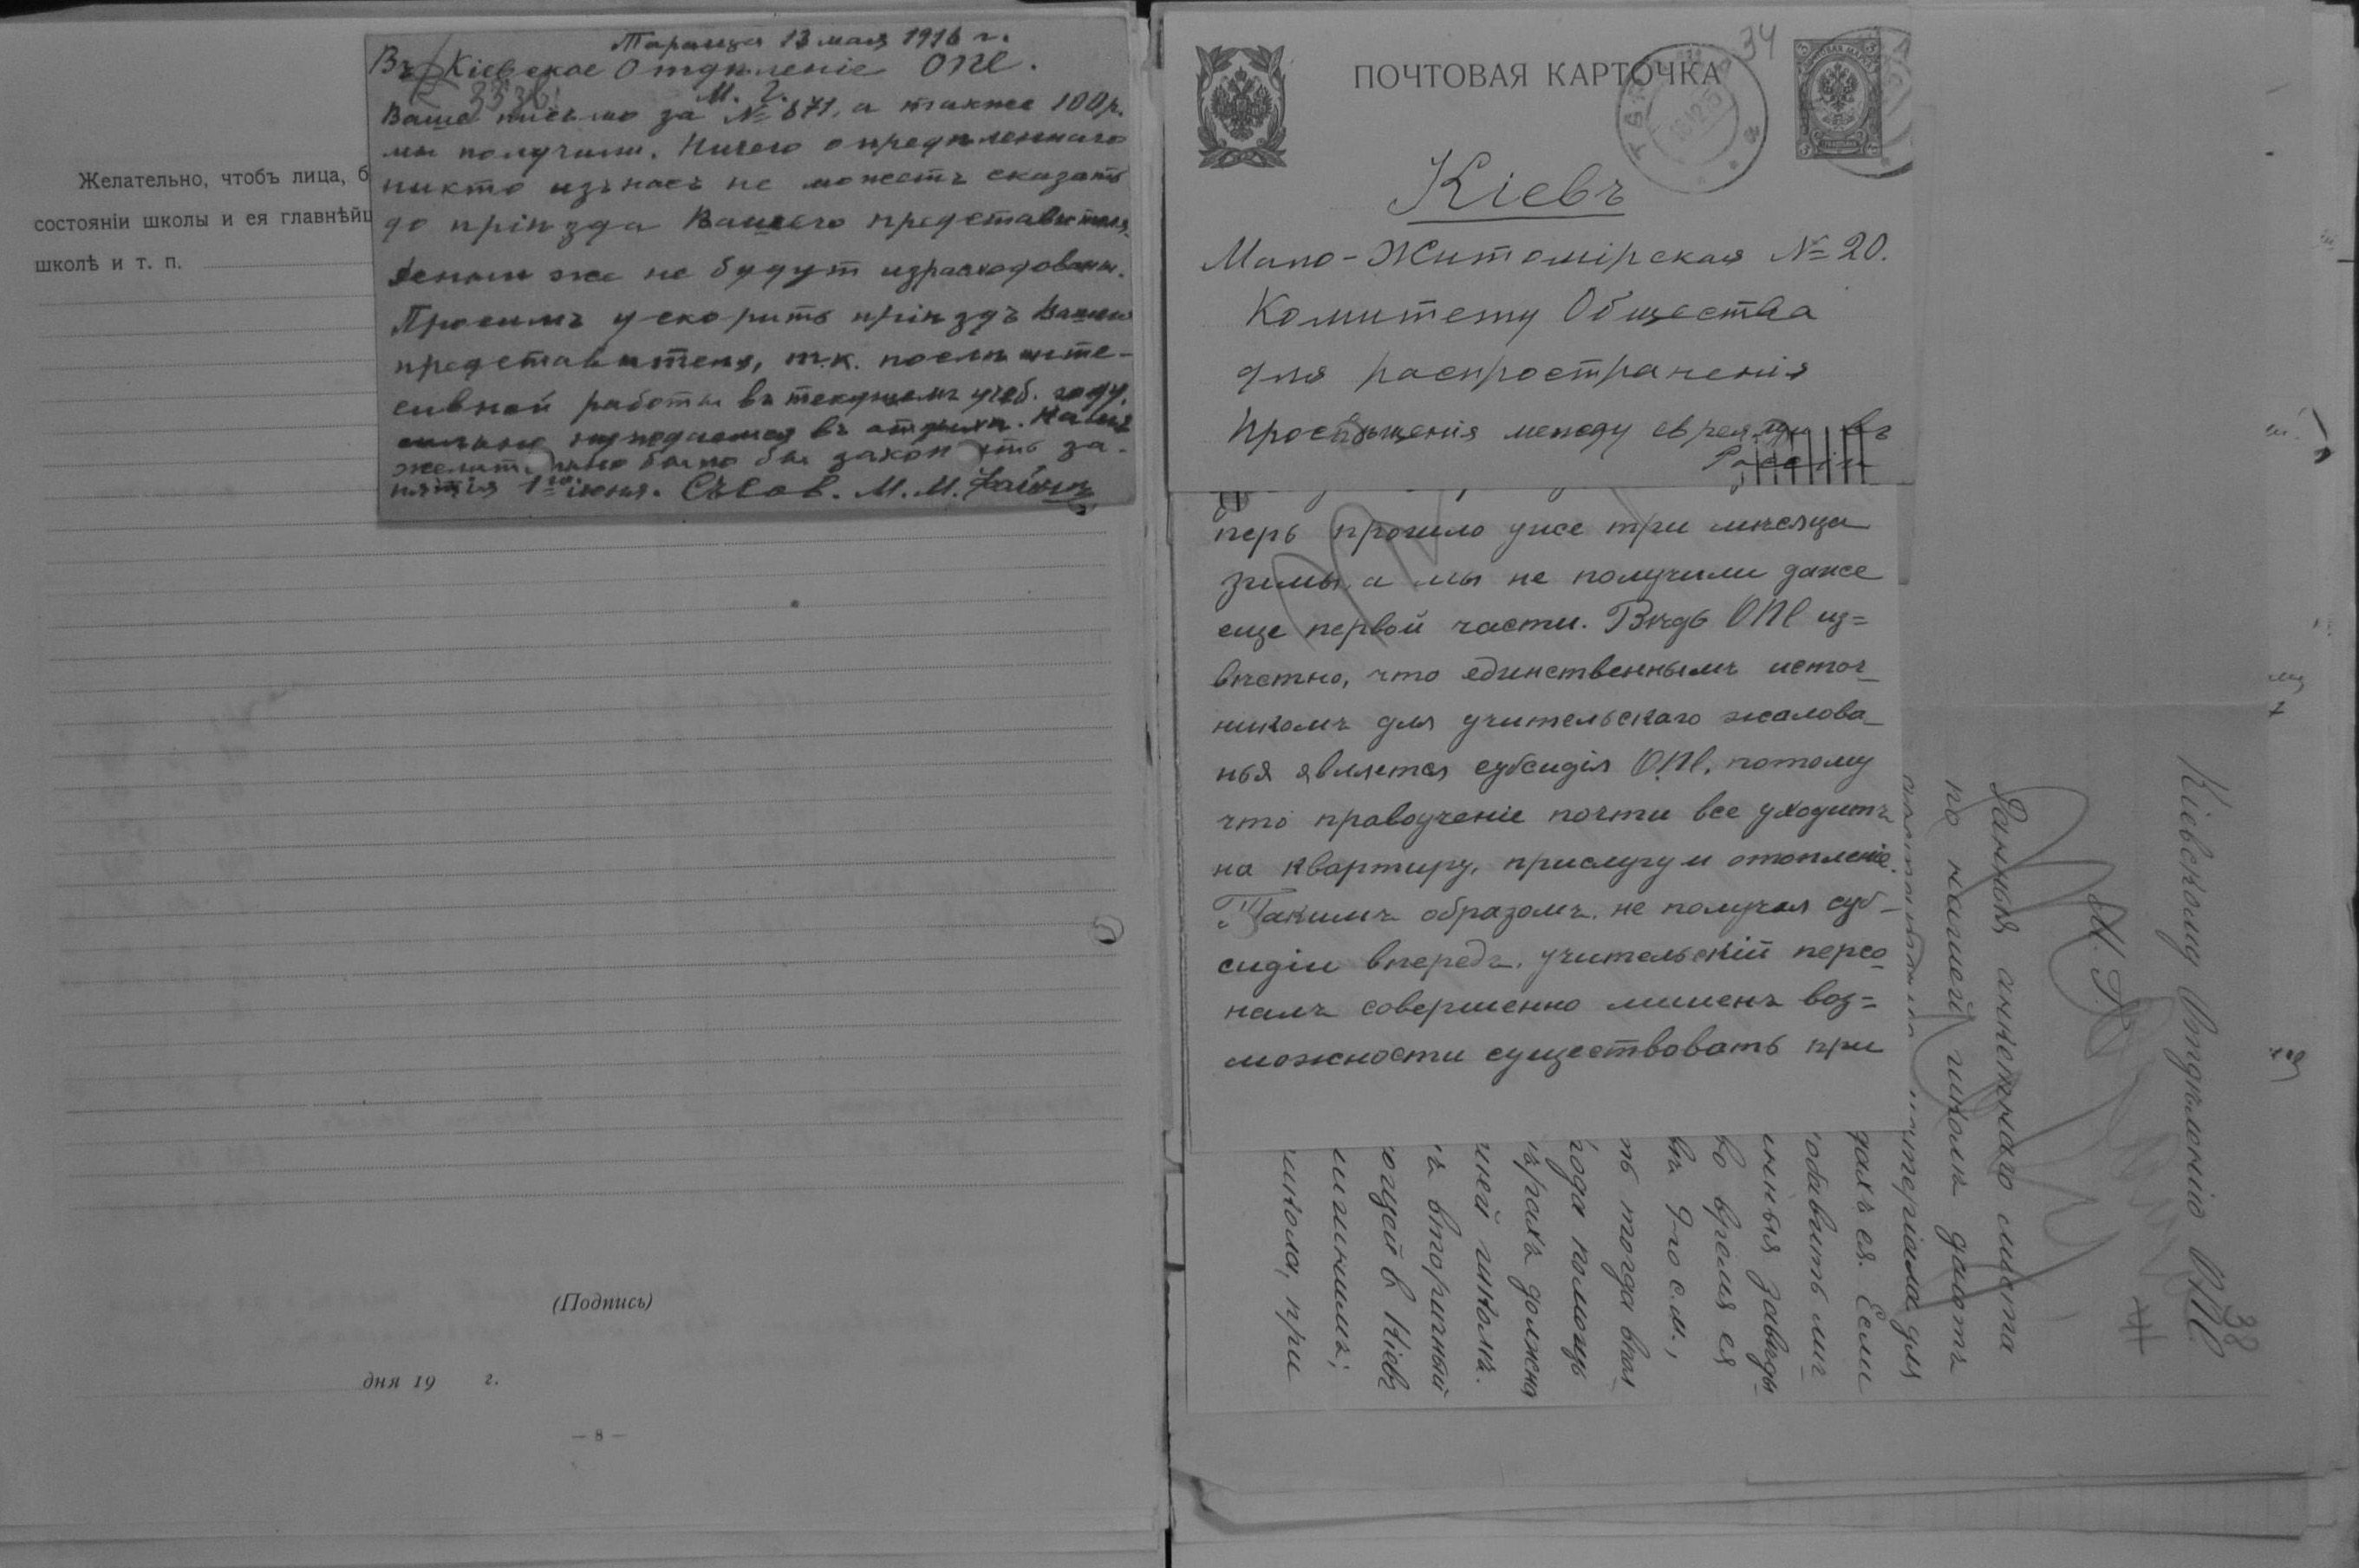 Желательно, чтобъ лица, б
состоянiи школы и ея главнѣйш
школѣ и т. п.
Тараща 13 мая 1916 г.
Въ Кiевское Отдѣленiе ОПЕ.
3336
М. Г.
Ваше письмо за № 871, а также 100 р.
мы получили. Ничего опредѣленнаго
никто изъ насъ не можетъ сказать
до прiѣзда Вашего представителя.
Деньги же не будут израсходованы.
Просимъ ускорить прiѣздъ Вашего
представителя, т.к. послѣ инте-
сивной работы въ текущемъ учеб. году,
сильно нуждаемся въ отдыхѣ. Намъ
желательно было бы закончить за-
нятiя 1го iюня. Съ сов. М. М.
(Подпись)
дня 19 г.
— 8 —
34
ПОЧТОВАЯ КАРТОЧКА
Кiевъ
Мало-Житомiрская № 20.
Комитету Общества
для распространенiя
Просвѣщенiя между евреями въ
Россiи
перь прошло уже три мѣсяца
зимы, а мы не получили даже
еще первой части. Вѣдь ОПЕ из=
вѣстно, что единственнымъ источ-
никомъ для учительскаго жалова-
нья является субсидiя О.П.Е. потому
что правоученiе почти все уходитъ
на квартиру, прислугу и отопленiе.
Такимъ образомъ, не получая суб-
сидiи впередъ, учительскiй персо-
налъ совершенно лишенъ воз=
можности существовать при
38
Кiевскому Отдѣленiю ОПЕ.
М. Г.
Данныя анкетнаго листа
по нашей школѣ даютъ
матерiала для
дахъ ея. Если
обавить мы
нныя заведы
во время ея
въ 9-го с.м.,
ть тогда впол
года помощь
ѣрахъ должна
шей школѣ.
ъ вторичный
ющей въ Кiевѣ
школа, при